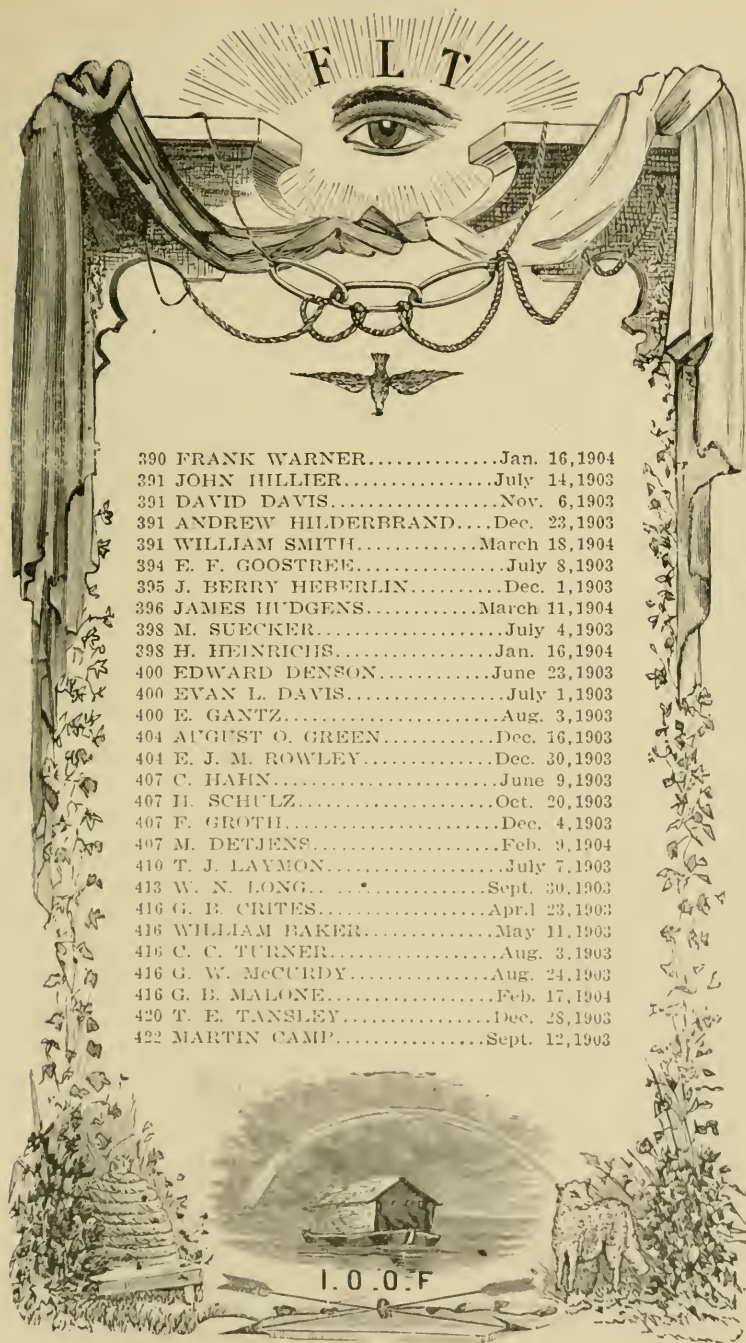 F L T
390 FRANK WARNER..............Jan. 16,1904
391 JOHN HILLIER................July 14,1903
391 DAVID DAVIS..................Nov. 6,1903
391 ANDREW HILDERBRAND....Dec. 23,1903
391 WILLIAM SMITH.............March 18,1904
394 E. F. GOOSTREE................July 8,1903
395 J. BERRY HEBERLIN..........Dec. 1,1903
396 JAMES HUDGENS............March 11,1904
398 M. SUECKER....................July 4,1903
398 H. HEINRICHS.................Jan. 16,1904
400 EDWARD DENSON............June 23,1903
400 EVAN L. DAVIS.................July 1,1903
400 E. GANTZ.......................Aug. 3,1903
404 AUGUST O. GREEN............Dec. 16,1903
404 E. J. M. ROWLEY..............Dec. 30,1903
407 C. HAHN........................June 9,1903
407 H. SCHULZ.....................Oct. 20,1903
407 F. GROTH.......................Dec. 4,1903
407 M. DETJENS....................Feb. 9,1904
410 T. J. LAYMON..................July 7,1903
413 W. N. LONG.. ................Sept. 30,1903
416 G. B. CRITES.................Apr.l 23,1903
416 WILLIAM BAKER..............May 11,1903
416 C. C. TURNER..................Aug. 3,1903
416 G. W. McCURDY..............Aug. 24,1903
416 G. B. MALONE.................Feb. 17,1904
420 T. E. TANSLEY................Dec. 28,1903
422 MARTIN CAMP...............Sept. 12,1903
I.O.O.F